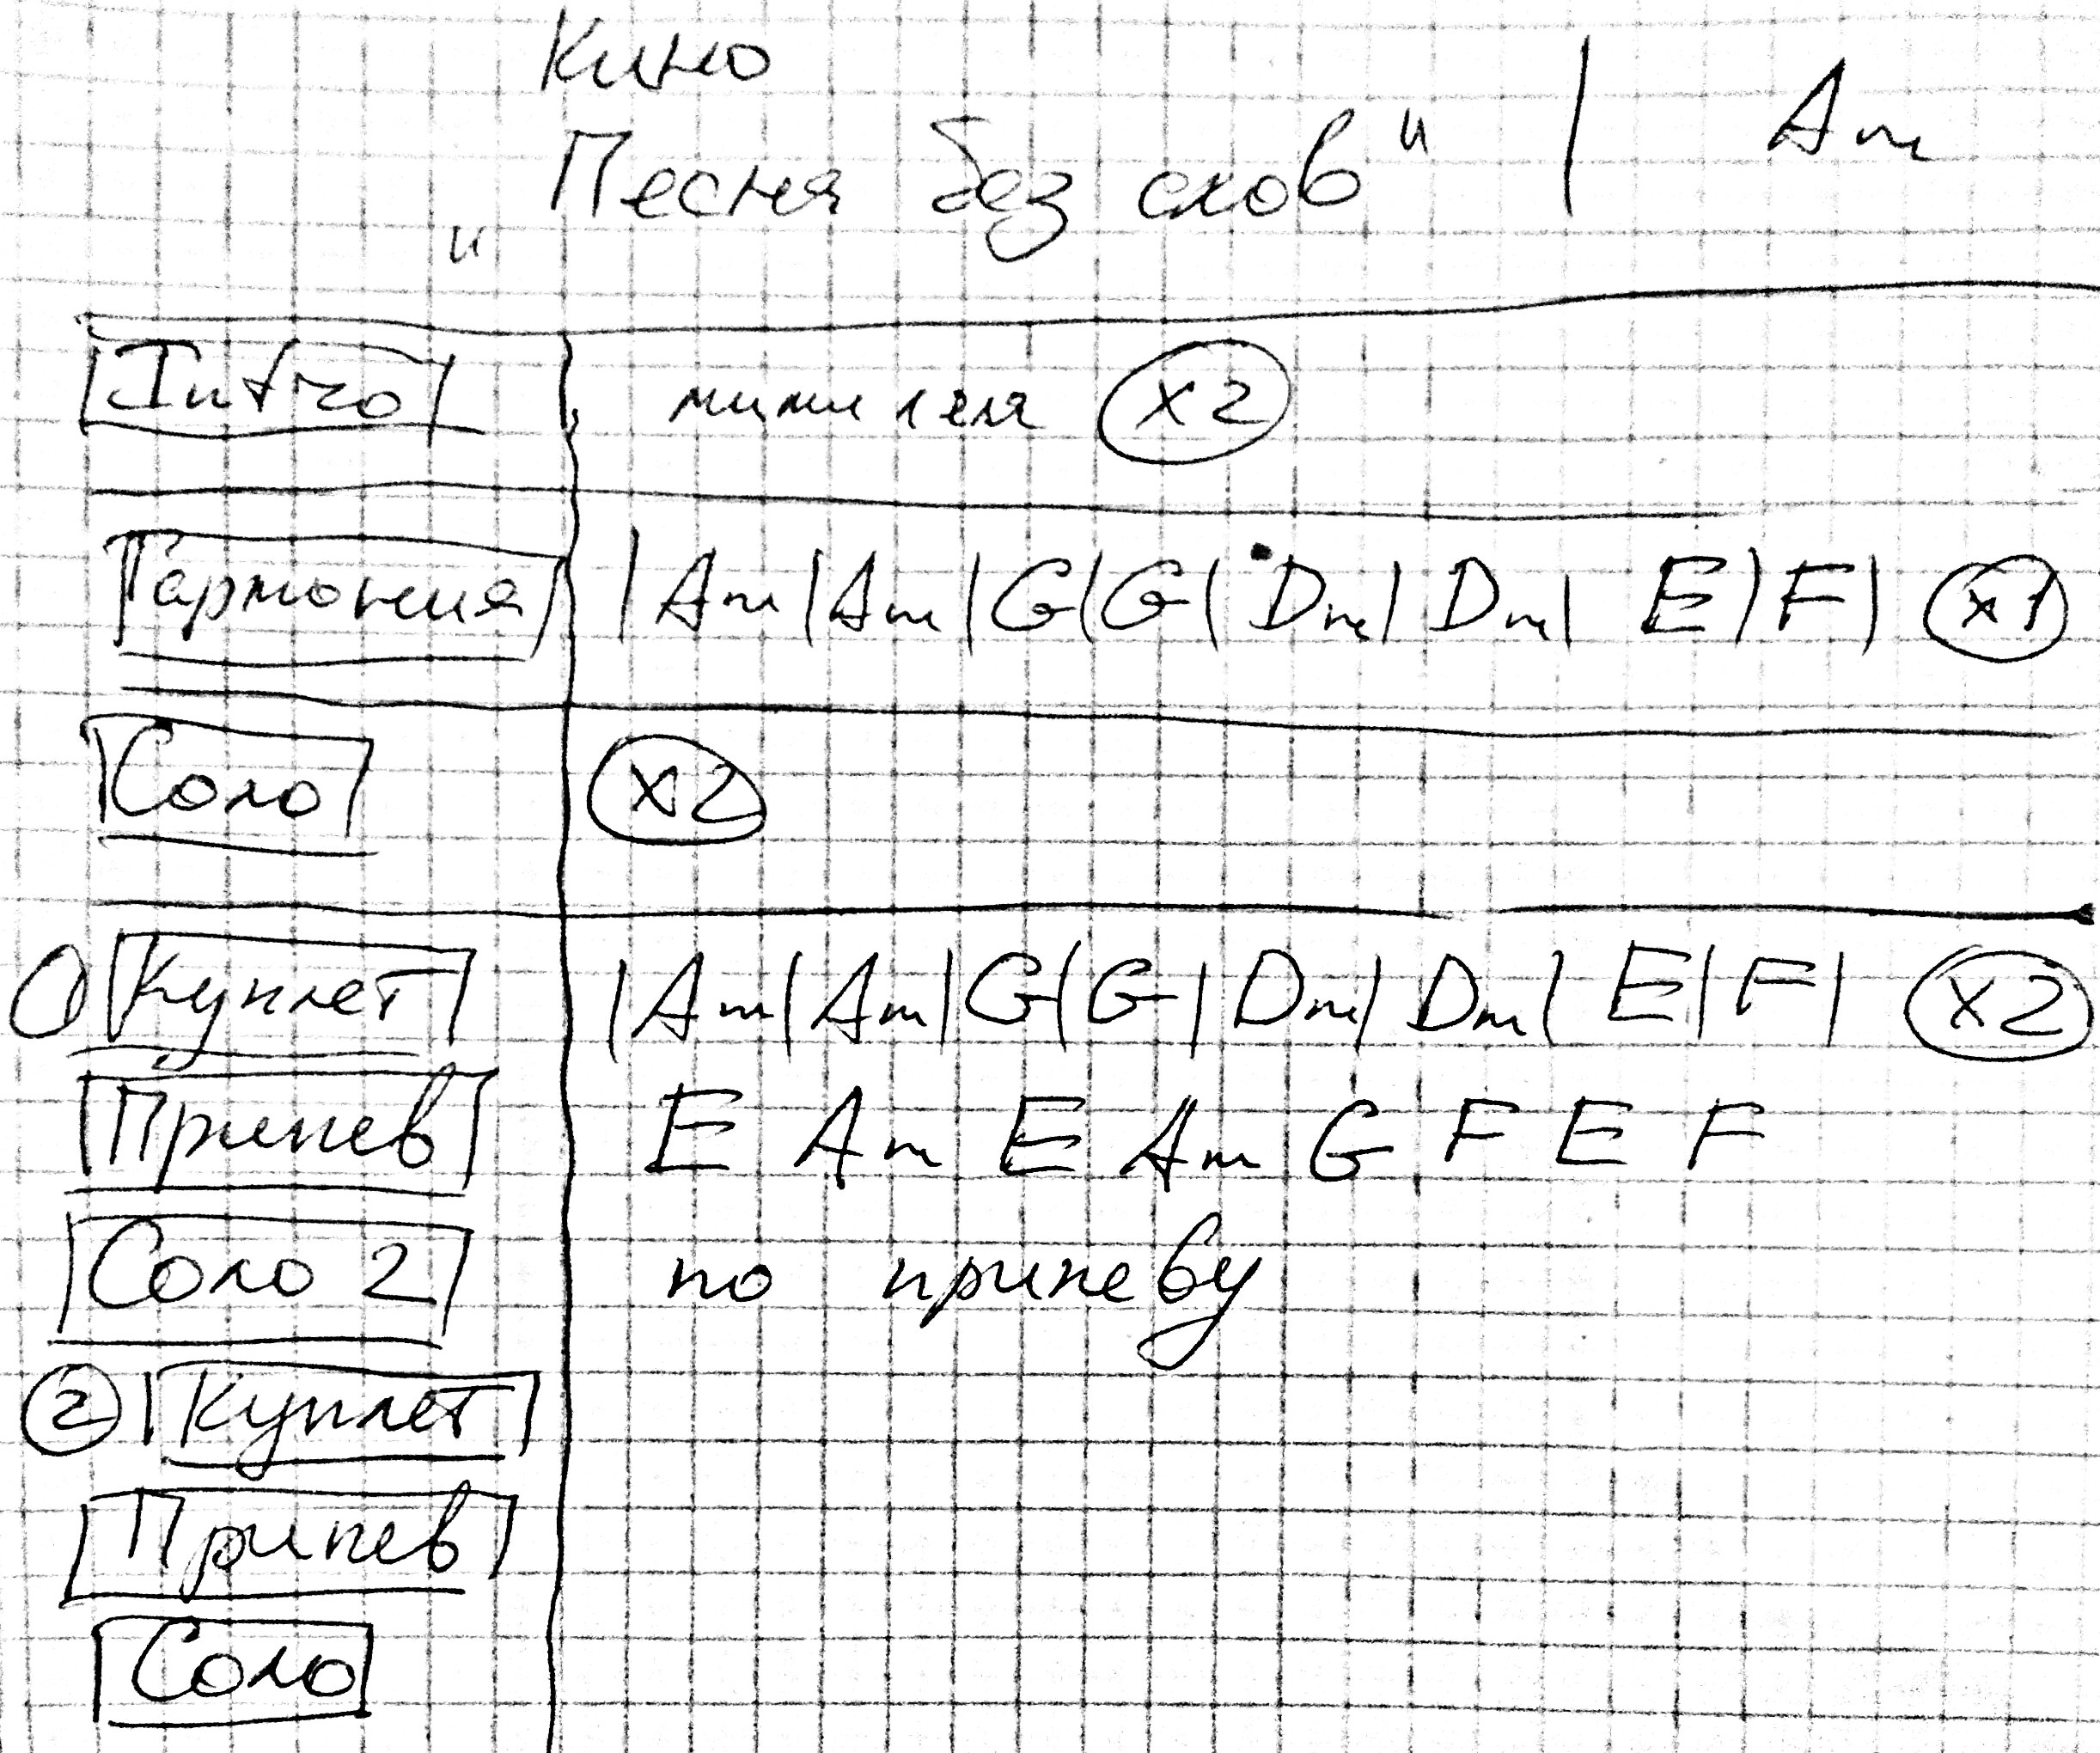 Кино
"Песня без слов" | Am
Intro мини геля x2
Гармония |Am|Am|G|G|Dm|Dm|E|F| x1
Соло x2
1 Куплет |Am|Am|G|G|Dm|Dm|E|F| x2
Припев E Am E Am G F E F
Соло 2 по припеву
2 Куплет
Припев
Соло